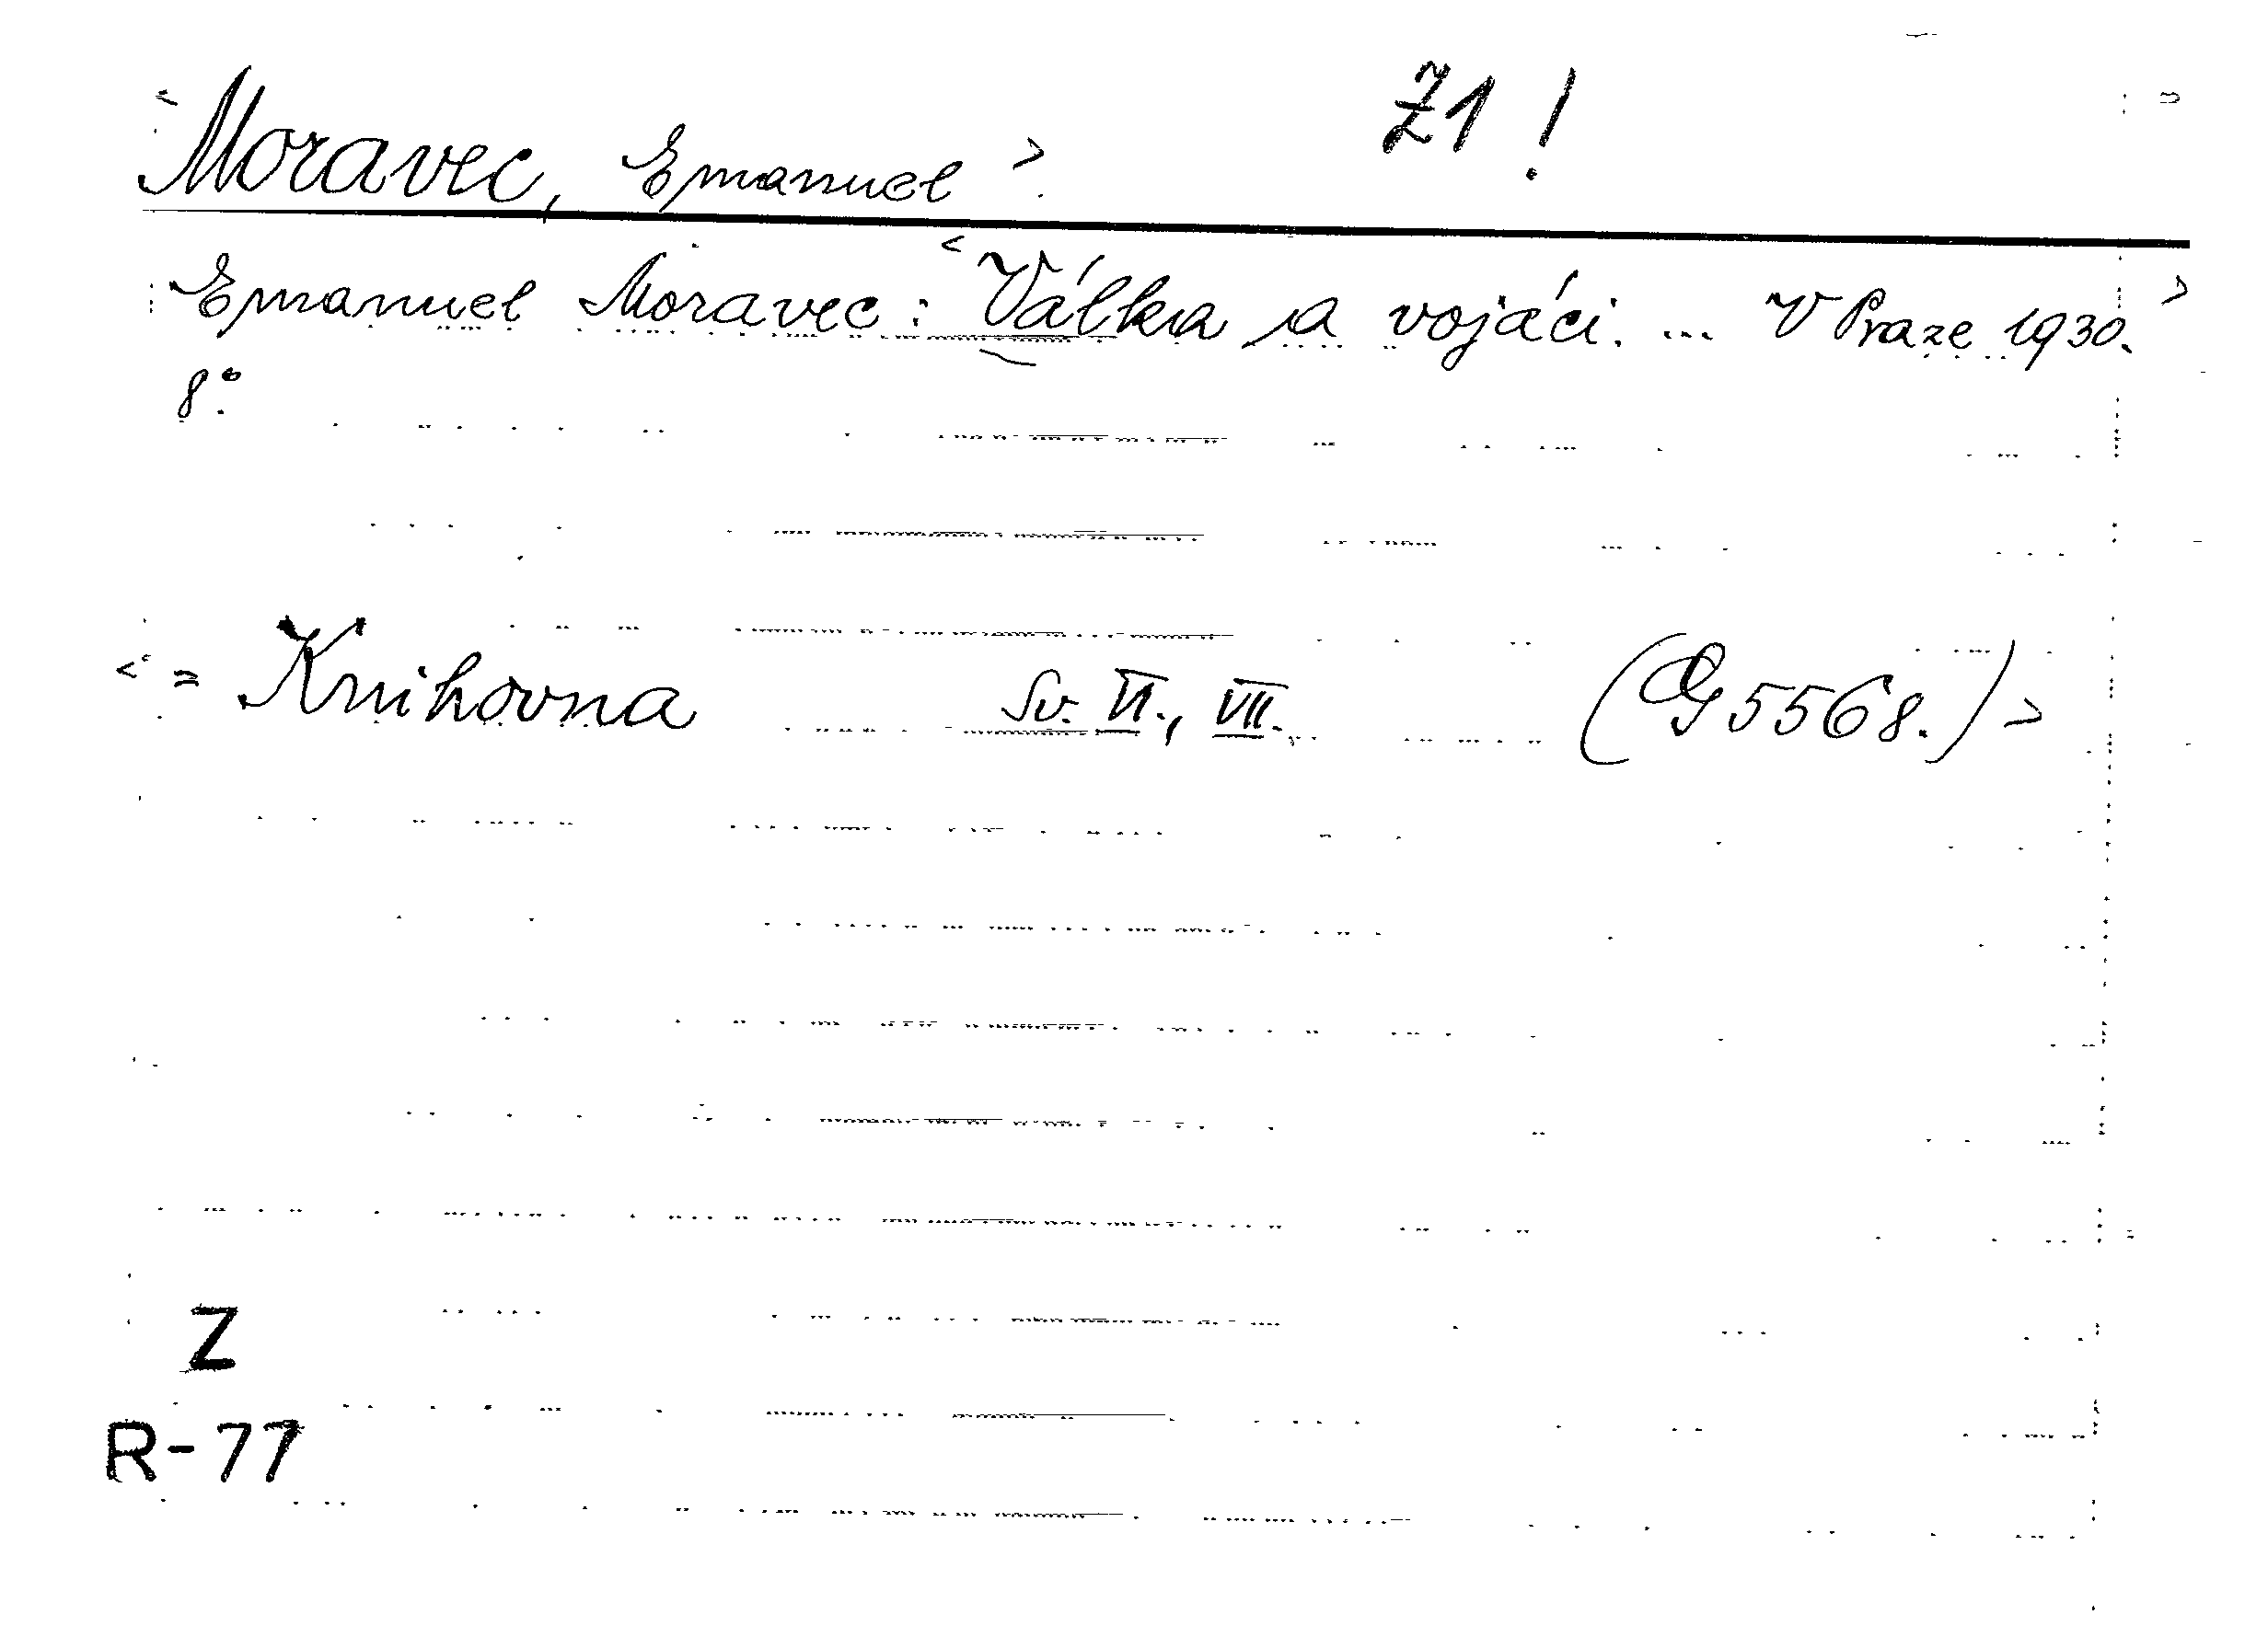 <Moravec, Emanuel> Z1!
Emanuel Moravec: <Válka a vojáci. ... V Praze 1930.>
8°.
<= Knihovna Sv. VI., VII. (G 5568.)>
Z
R-77